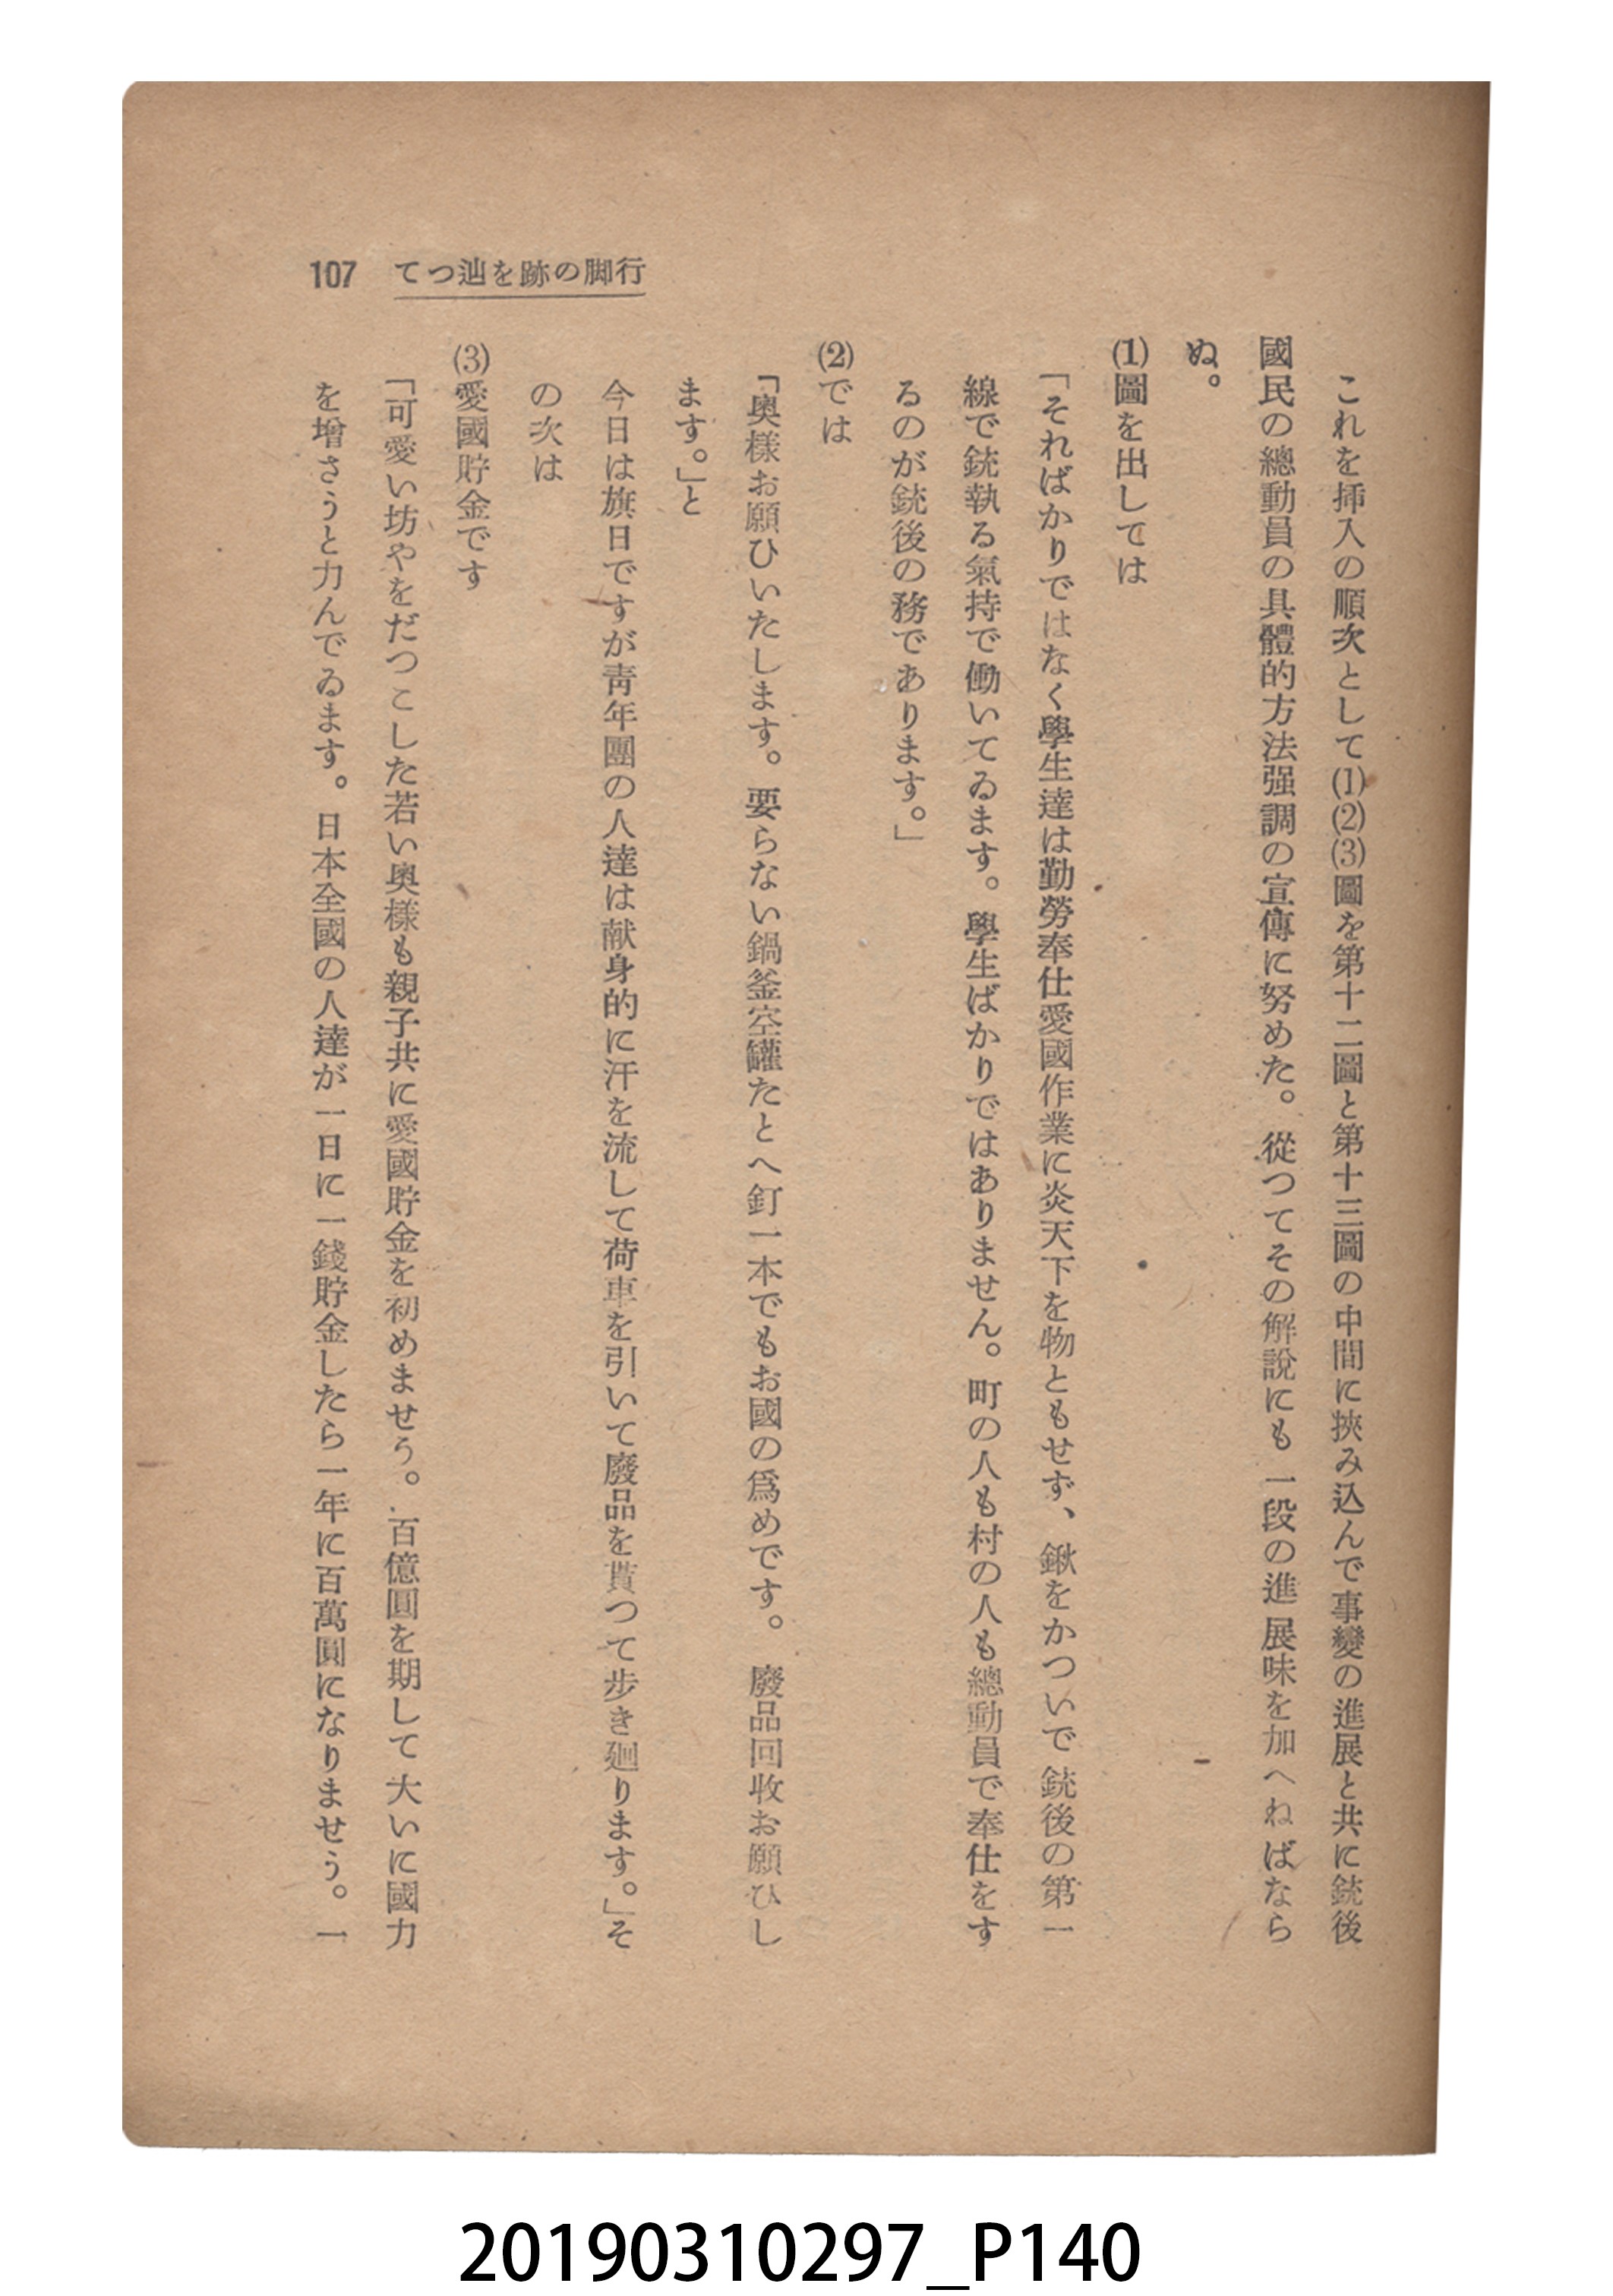 107 てつ辿を跡の脚行
これを挿入の順次として(1)(2)(3)圖を第十二圖と第十三圖の中間に挾み込んで事變の進展と共に銃後
國民の總動員の具體的方法强調の宣傳に努めた。從つてその解說にも一段の進展味を加へねばなら
ぬ。
(1)圖を出しては
「そればかりではなく學生達は勤勞奉仕愛國作業に炎天下を物ともせず、鍬をかついで銃後の第一
線で銃執る氣持で働いてゐます。學生ばかりではありません。町の人も村の人も總動員で奉仕をす
るのが銃後の務であります。」
(2)では
「奧樣お願ひいたします。要らない鍋釜空罐たとへ釘一本でもお國の爲めです。廢品回收お願ひし
ます。」と
今日は旗日ですが靑年團の人達は献身的に汗を流して荷車を引いて廢品を貰つて步き廻ります。」そ
の次は
(3)愛國貯金です
「可愛い坊やをだつこした若い奧樣も親子共に愛國貯金を初めませう。百億圓を期して大いに國力
を增さうと力んでゐます。日本全國の人達が一日に一錢貯金したら一年に百萬圓になりませう。一
20190310297_P140